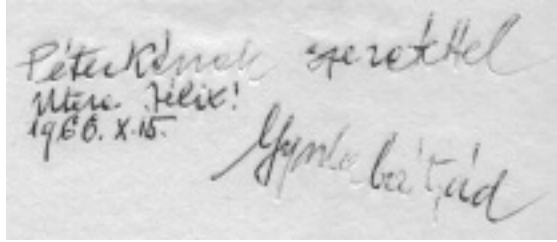 Péterkének szeretettel
Utere Félix!
1966. X. 15.
Gyula bátyád